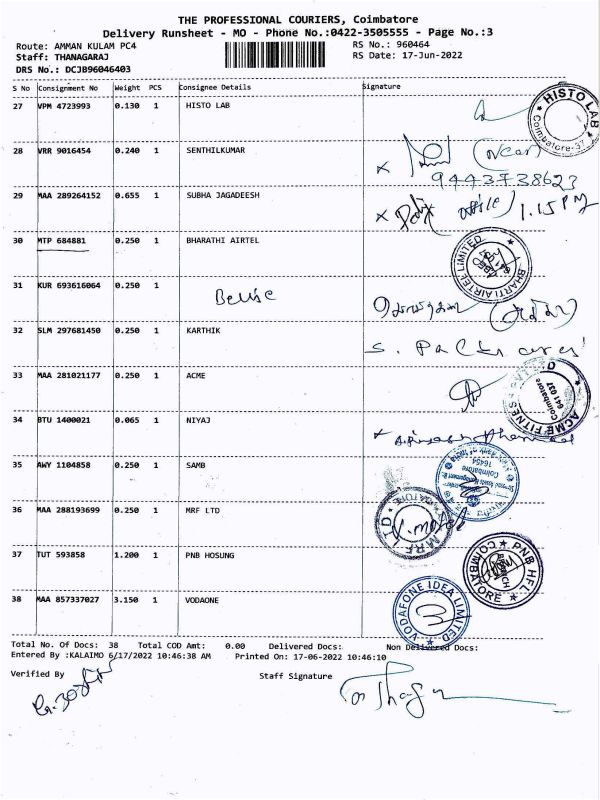 THE PROFESSIONAL COURIERS, Coimbatore
Delivery Runsheet - MO - Phone No.:0422-3505555 - Page No.:3
Route: AMMAN KULAM PC4
RS No.: 960464
Staff: THANAGARAJ
RS Date: 17-Jun-2022
DRS No.: DCJB96046403
S No Consignment No Weight PCS Consignee Details Signature
27 VPM 4723993 0.130 1 HISTO LAB
HISTO LAB Coimbatore-37
28 VRR 9016454 0.240 1 SENTHILKUMAR
9443738623
29 MAA 289264152 0.655 1 SUBHA JAGADEESH
1.15 PM
30 MTP 684881 0.250 1 BHARATHI AIRTEL
BHARTI AIRTEL LIMITED
31 KUR 693616064 0.250 1
32 SLM 297681450 0.250 1 KARTHIK
33 MAA 281021177 0.250 1 ACME
Coimbatore 641 037
34 BTU 1400021 0.065 1 NIYAJ
35 AWY 1104858 0.250 1 SAMB
Coimbatore
16454
36 MAA 288193699 0.250 1 MRF LTD
MRF LTD
37 TUT 593858 1.200 1 PNB HOSUNG
PNB HFL COIMBATORE BRANCH
38 MAA 857337027 3.150 1 VODAONE
VODAFONE IDEA LIMITED
Total No. Of Docs: 38 Total COD Amt: 0.00 Delivered Docs: Non Delivered Docs:
Entered By :KALAIMO 6/17/2022 10:46:38 AM Printed On: 17-06-2022 10:46:10
Verified By
Staff Signature